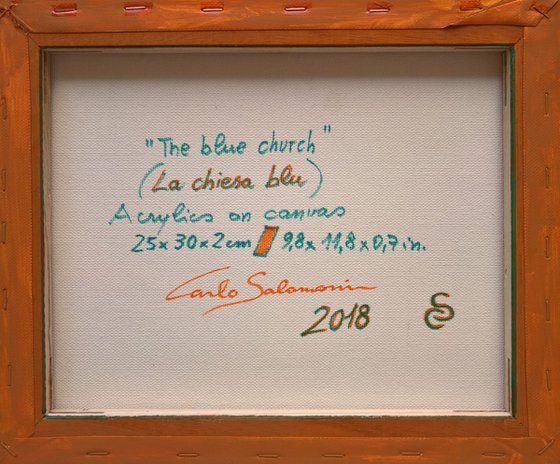 "The blue church"
(La chiesa blu)
Acrylics on canvas
25x30x2cm / 9,8x11,8x0,7in.
Carlo Salomoni
2018 CS